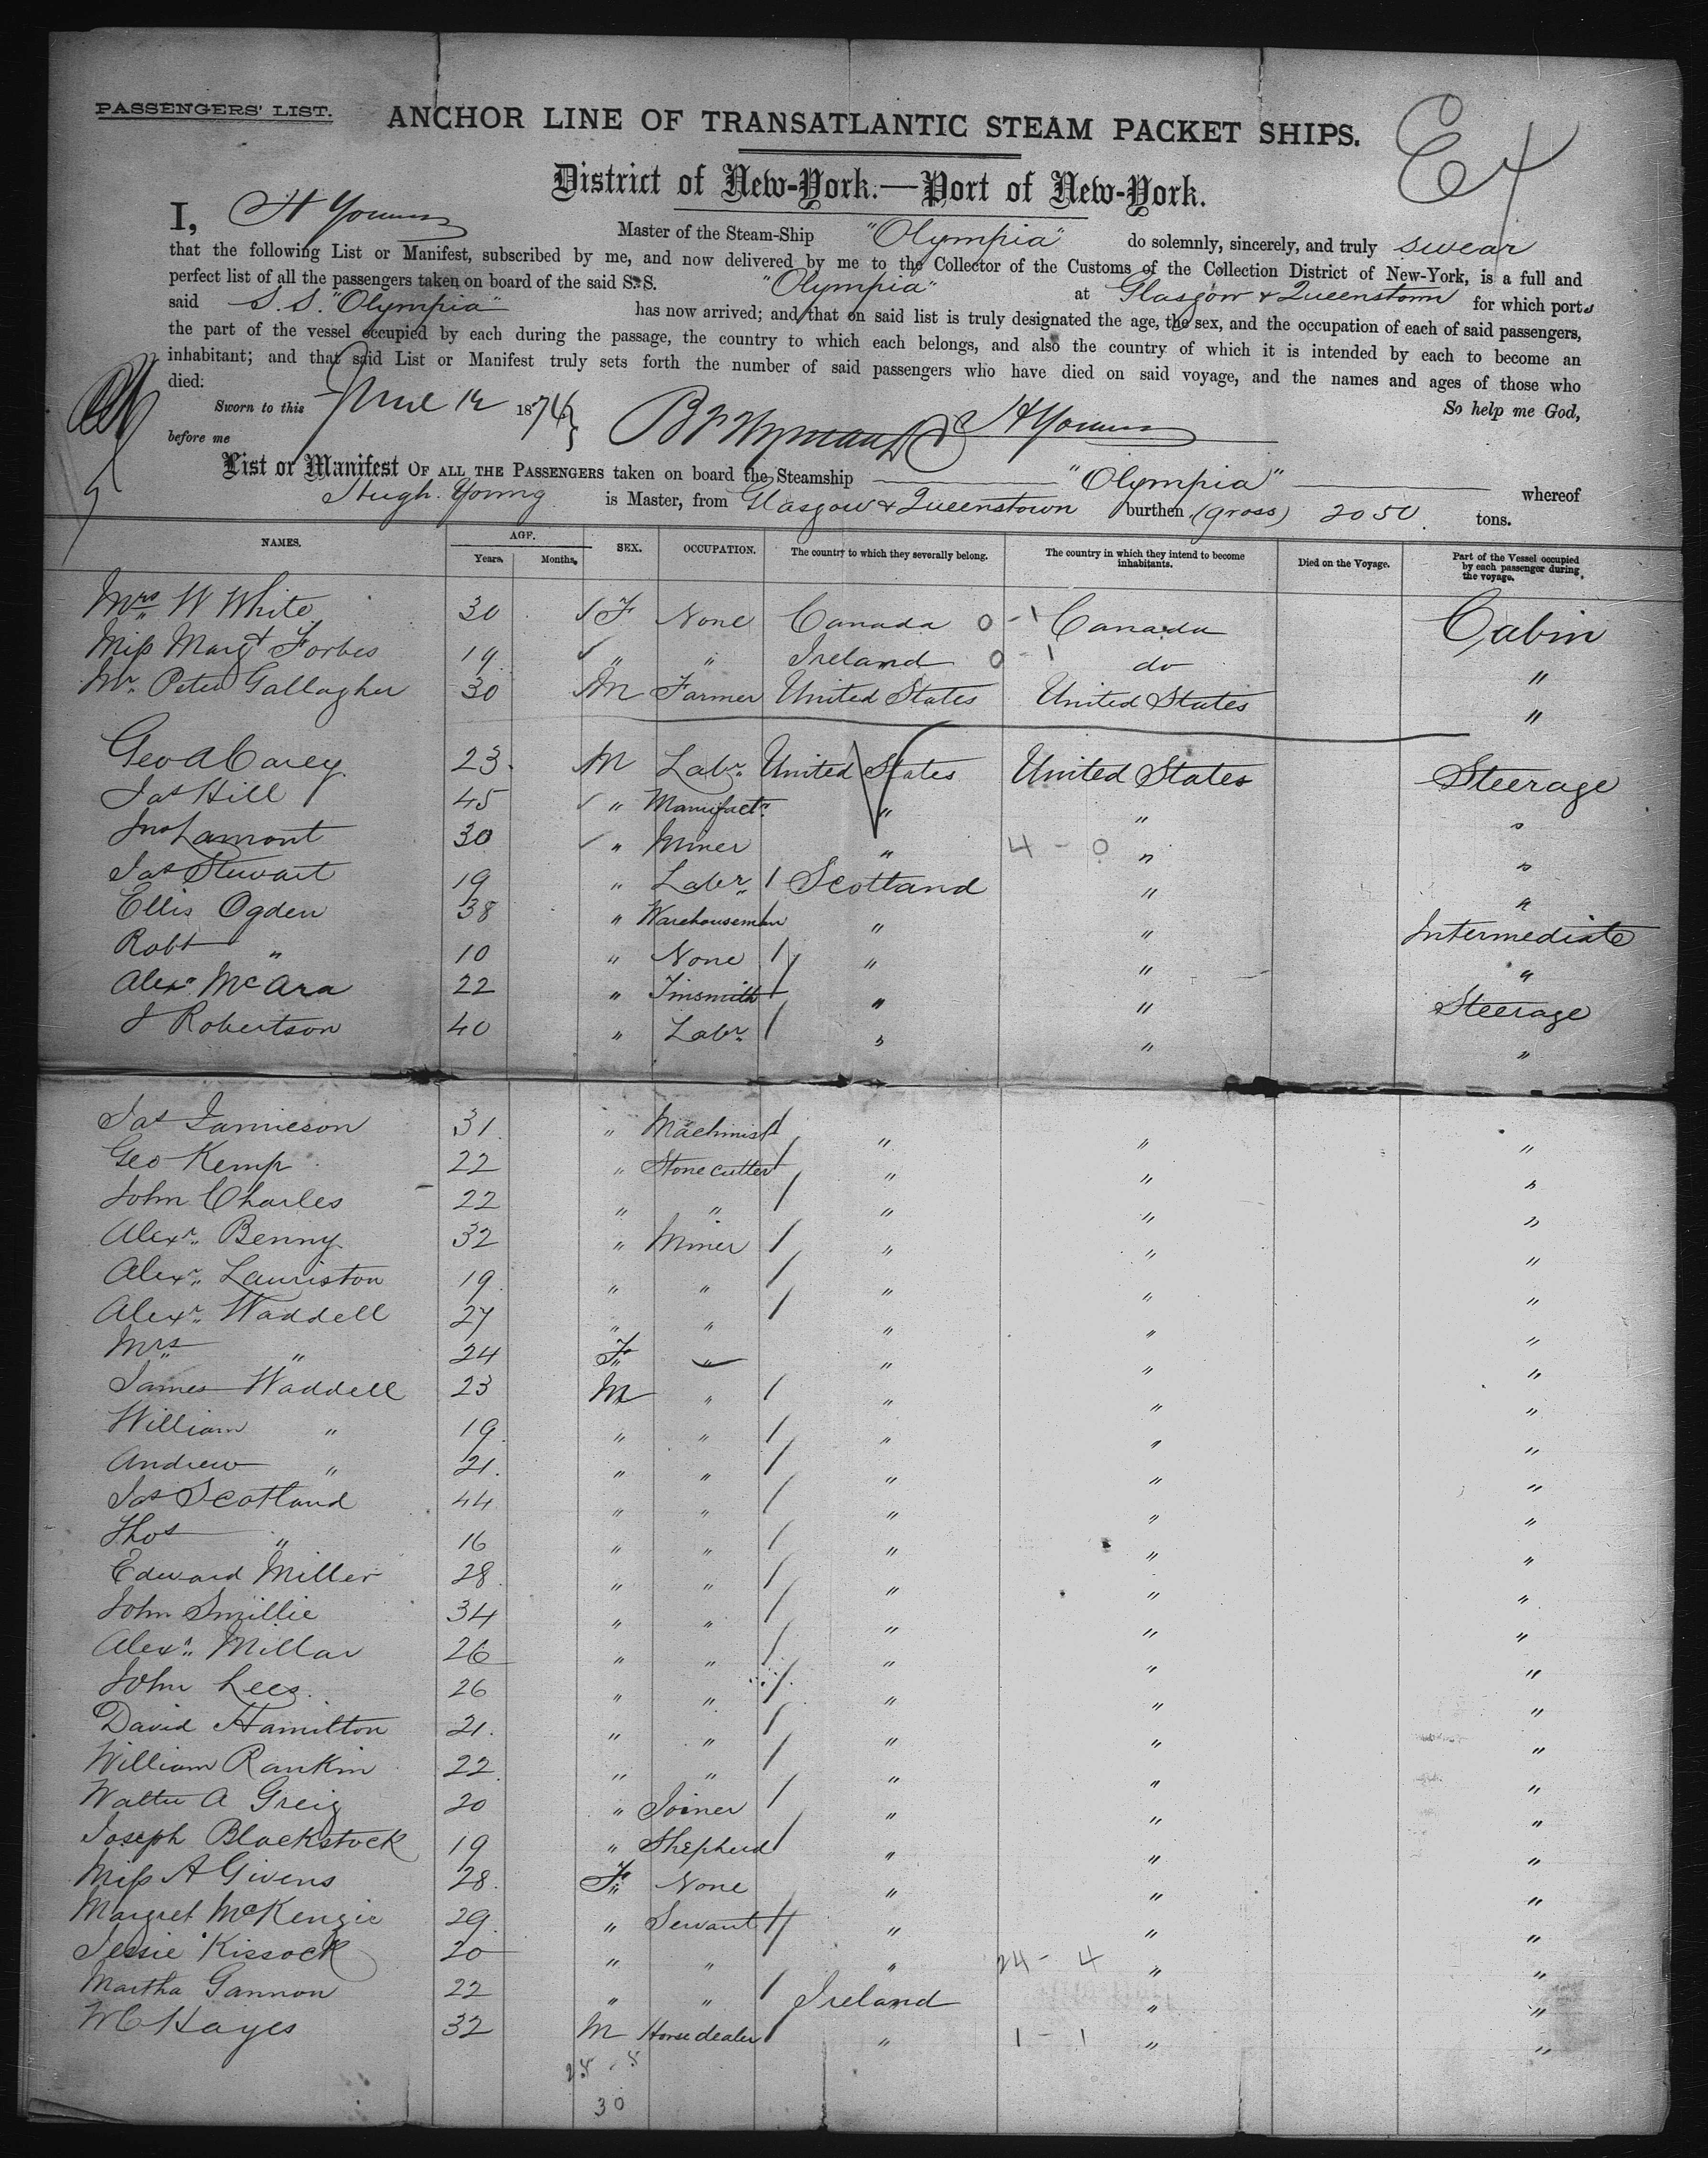 PASSENGERS' LIST.
ANCHOR LINE OF TRANSATLANTIC STEAM PACKET SHIPS.
District of New-York.—Port of New-York.
I, H Young Master of the Steam-Ship "Olympia" do solemnly, sincerely, and truly swear
that the following List or Manifest, subscribed by me, and now delivered by me to the Collector of the Customs of the Collection District of New-York, is a full and
perfect list of all the passengers taken on board of the said S.S. "Olympia" at Glasgow & Queenstown for which ports
said S.S. "Olympia" has now arrived; and that on said list is truly designated the age, the sex, and the occupation of each of said passengers,
the part of the vessel occupied by each during the passage, the country to which each belongs, and also the country of which it is intended by each to become an
inhabitant; and that said List or Manifest truly sets forth the number of said passengers who have died on said voyage, and the names and ages of those who
died:
So help me God,
Sworn to this June 12 1874
before me H Young
List or Manifest OF ALL THE PASSENGERS taken on board the Steamship "Olympia" whereof
Hugh Young is Master, from Glasgow & Queenstown burthen (gross) 2050 tons.
NAMES. AGE. Years. Months. SEX. OCCUPATION. The country to which they severally belong. The country in which they intend to become inhabitants. Died on the Voyage. Part of the Vessel occupied by each passenger during the voyage.
Mrs W White 30 F None Canada 0 - 1 Canada Cabin
Miss Margt Forbes 19 " " Ireland 0 - 1 do "
Mr. Peter Gallagher 30 M Farmer United States United States "
Geo A Carey 23 M Labr. United States United States Steerage
Jas Hill 45 " Manufactr. " " "
Jno Lamont 30 " Miner " 4 - 0 " "
Jas Stewart 19 " Labr. 1 Scotland " "
Ellis Ogden 38 " Warehouseman " " Intermediate
Robt " 10 " None 1 " " "
Alexr McAra 22 " Tinsmith " " Steerage
J Robertson 40 " Labr. " " "
Jas Jamieson 31 " Machinist " " "
Geo Kemp 22 " Stone cutter " " "
John Charles 22 " " " " "
Alexr. Benny 32 " Miner " " "
Alexr. Lauriston 19 " " " " "
Alexr. Waddell 27 " " " " "
Mrs " 24 F " " " "
James Waddell 23 M " " " "
William " 19 " " " " "
Andrew " 21 " " " " "
Jas Scotland 44 " " " " "
Thos " 16 " " " " "
Edward Miller 28 " " " " "
John Smillie 34 " " " " "
Alexr. Millar 26 " " " " "
John Lees 26 " " " " "
David Hamilton 21 " " " " "
William Rankin 22 " " " " "
Walter A Greig 20 " Joiner " " "
Joseph Blackstock 19 " Shepherd " " "
Miss A Givens 28 F None " " "
Margret McKenzie 29 " Servant " " "
Jessie Kissock 20 " " " 24 - 4 " "
Martha Gannon 22 " " Ireland " "
W C Hayes 32 M Horse dealer " 1 - 1 " "
25 - 5
30